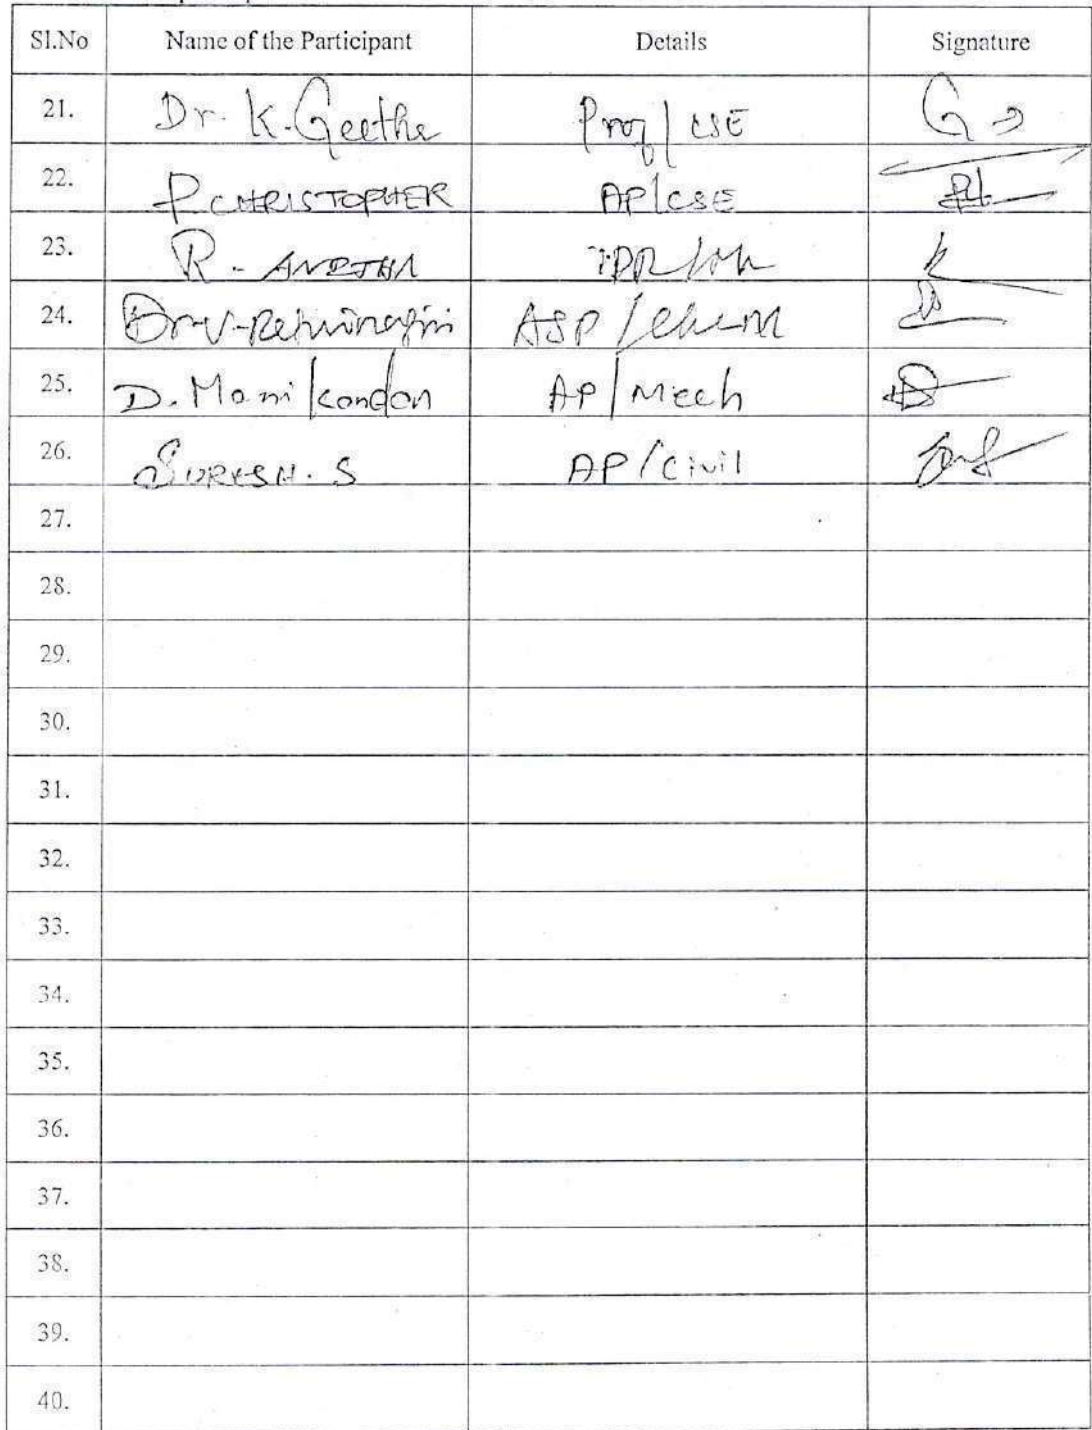 Sl.No Name of the Participant Details Signature
21. Dr. K. Geetha Prof / CSE
22. P. CHRISTOPHER AP/CSE
23. R. ANITHA
24. Dr. V. ASP / Chem
25. D. Manikandan AP / Mech
26. SURESH. S AP / Civil
27.
28.
29.
30.
31.
32.
33.
34.
35.
36.
37.
38.
39.
40.